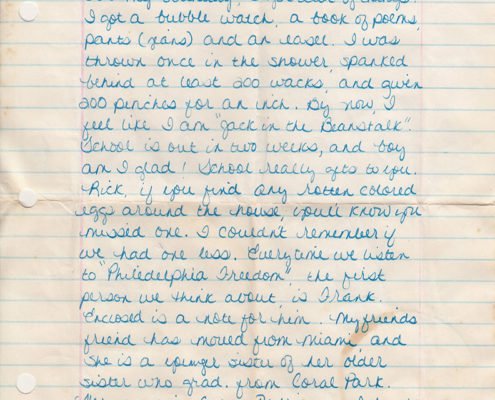 I got a bubble watch, a book of poems,
pants (jeans) and an easel. I was
thrown once in the shower, spanked
behind at least 200 wacks, and given
200 pinches for an inch. By now, I
feel like I am "Jack in the Beanstalk".
School is out in two weeks, and boy
am I glad! School really gets to you.
Rick, if you find any rotten colored
eggs around the house, you'll know you
missed one. I couldn't remember if
we had one less. Everytime we listen
to "Philadelphia Freedom", the first
person we think about, is Frank.
Enclosed is a note for him. My friends
friend has moved from Miami and
she is a younger sister of her older
sister who grad. from Coral Park.